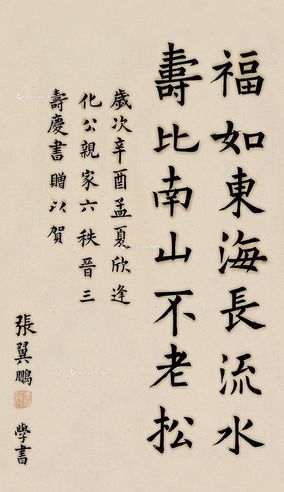 福如東海長流水
壽比南山不老松
歲次辛酉孟夏欣逢
化公親家六秩晉三
壽慶書贈以賀
張翼鵬
學書